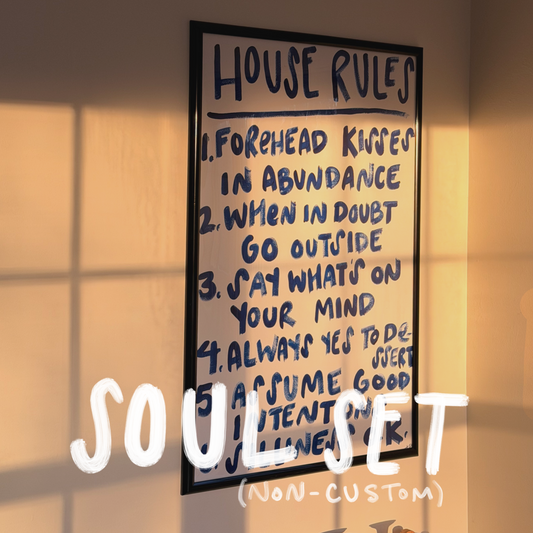 HOUSE RULES
1. FOREHEAD KISSES
IN ABUNDANCE
2. WHEN IN DOUBT
GO OUTSIDE
3. SAY WHAT'S ON
YOUR MIND
4. ALWAYS YES TO DE-
SSERT
5 ASSUME GOOD
INTENTIONS
SILLINESS OK.
SOUL SET
(NON-CUSTOM)